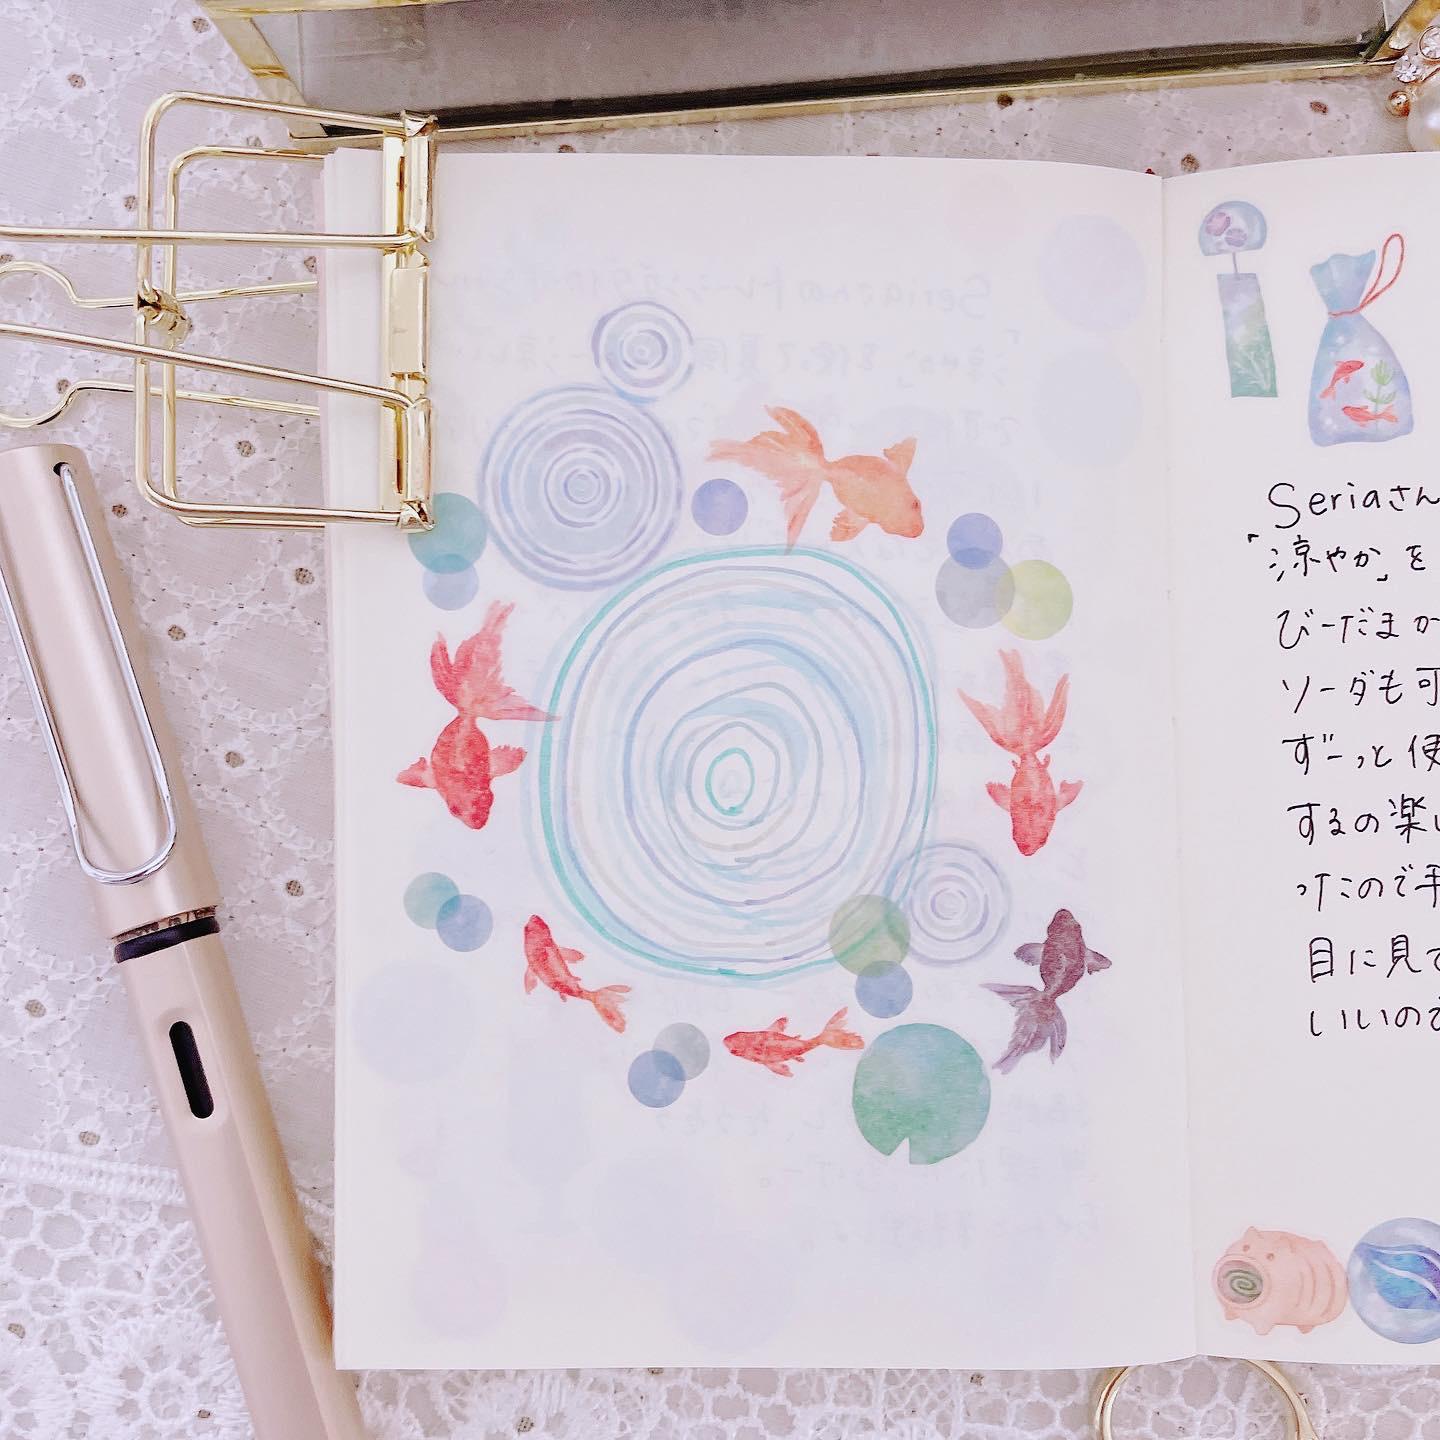 Seriaさん
「涼やか」を
びーだまか
ソーダも可
ずーっと使
するの楽し
ったので手
目に見て
いいので